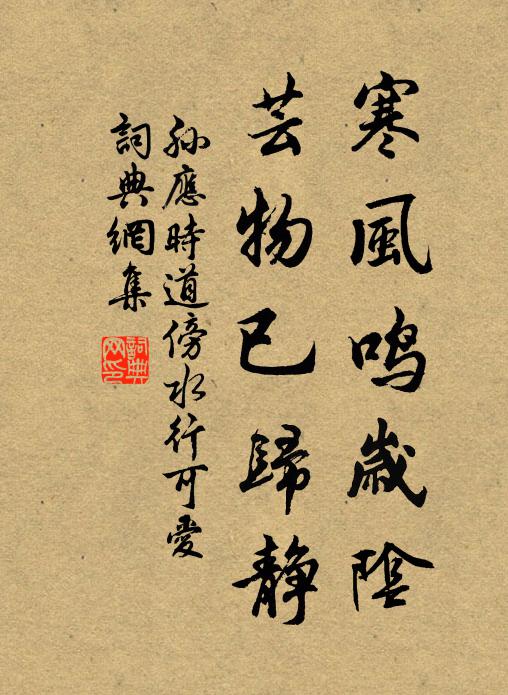 寒風鳴歲陰
芸物已歸靜
孫應時道傍水行可愛
詞典網集
詞典
网印